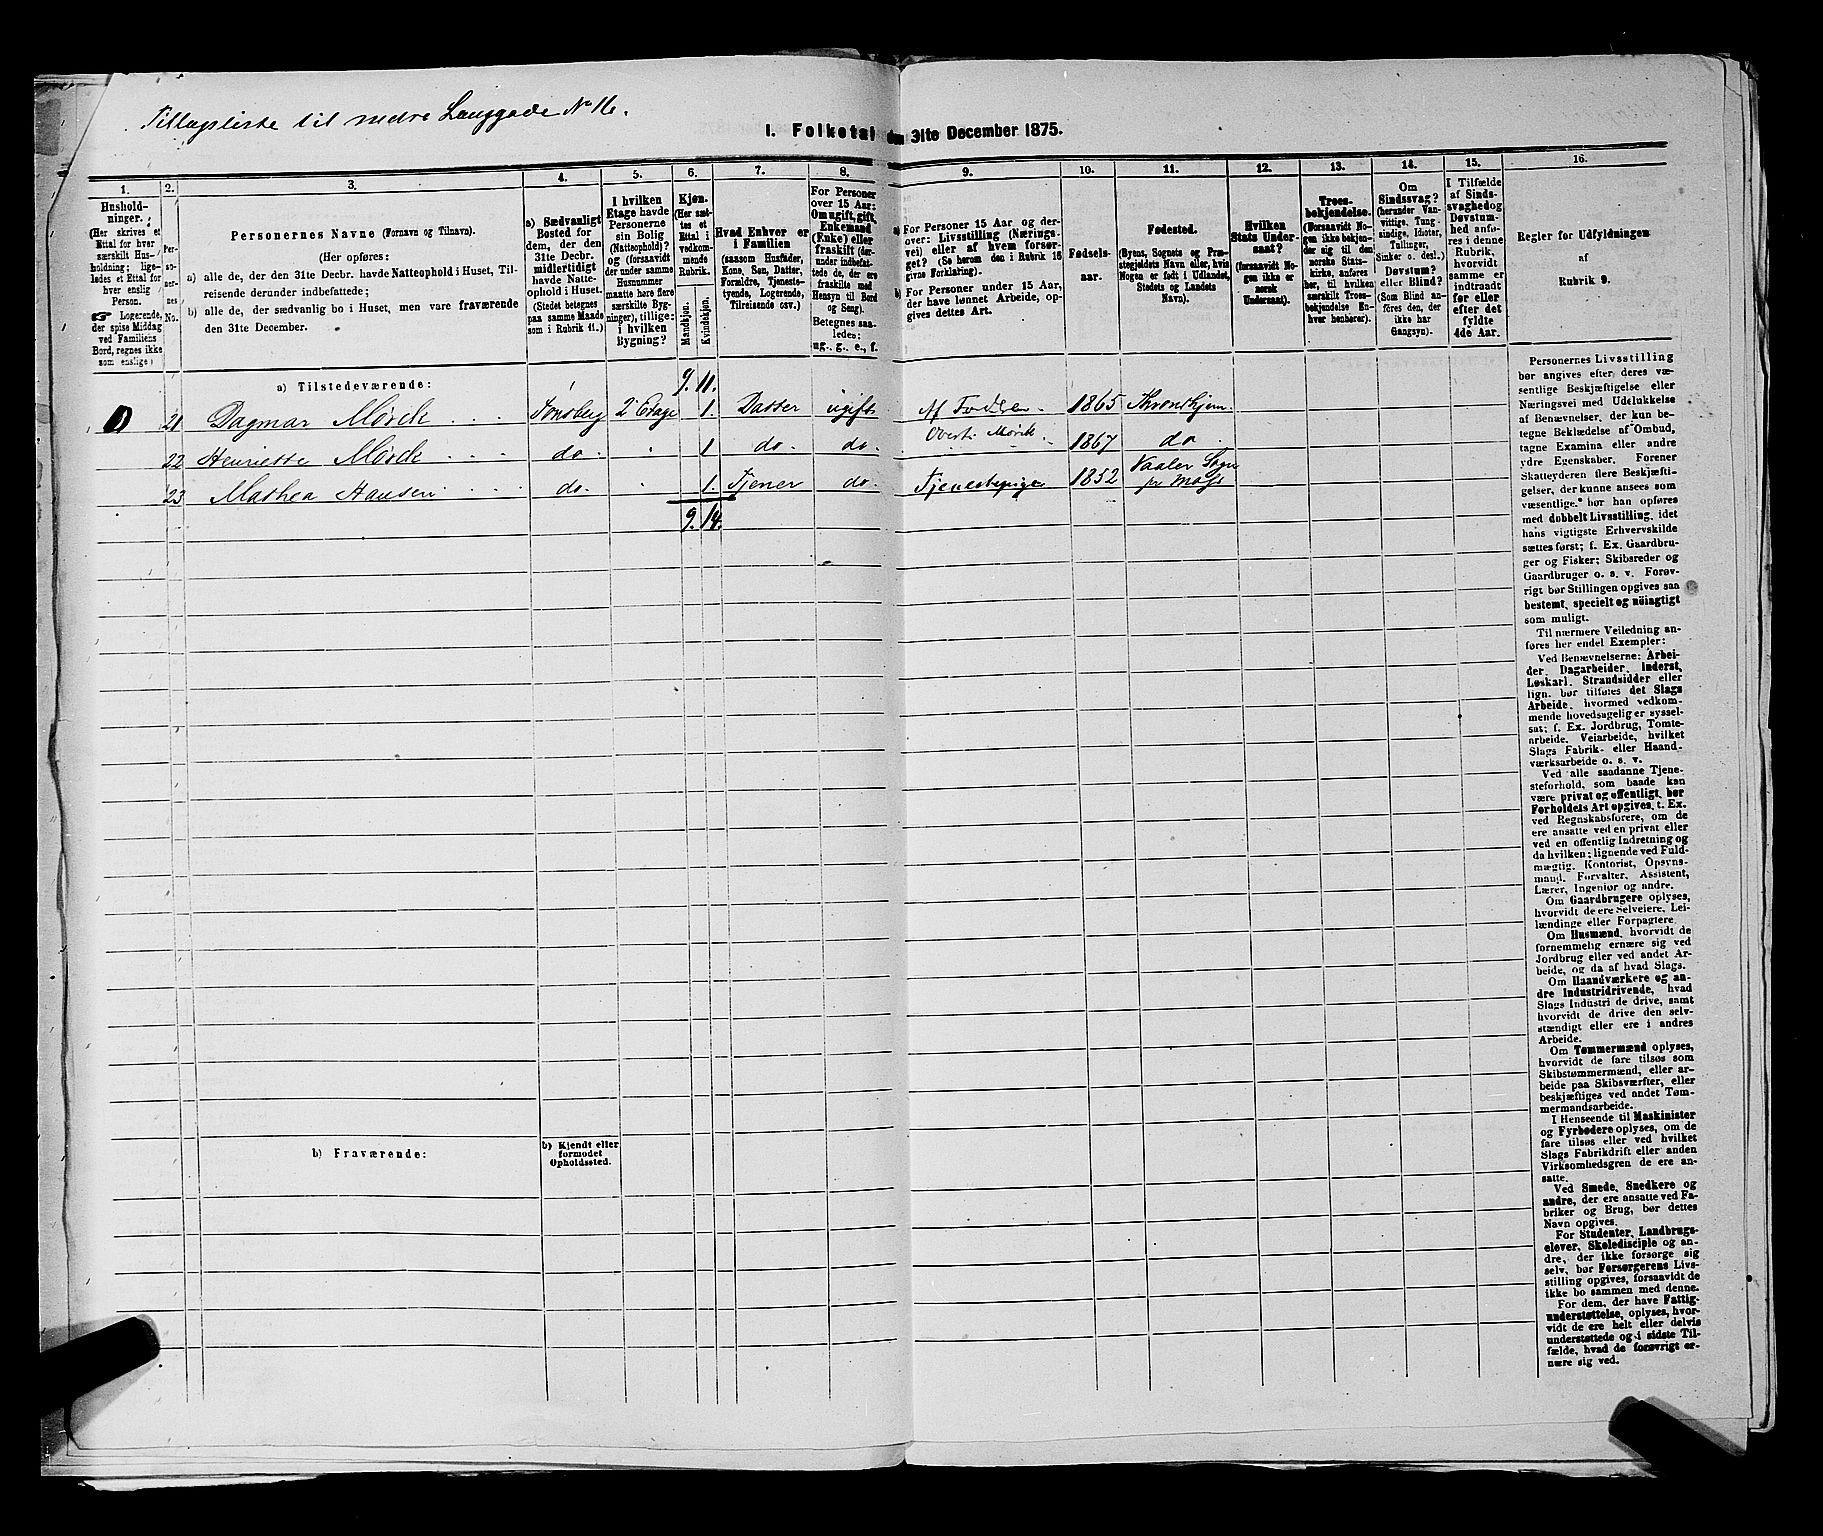 Tillægsliste til nedre Langgade No 16.
I. Folketal den 31te December 1875.
1.
Hushold-
ninger.
(Her skrives et
Ettal for hver
særskilt Hus-
holdning; lige-
ledes et Ettal for
hver enslig
Person.
☞ Logerende,
der spise Middag
ved Familiens
Bord, regnes ikke
som enslige)
2.
Per-
so-
ner-
nes
No.
3.
Personernes Navne (Fornavn og Tilnavn).
(Her opføres:
a) alle de, der den 31te Decbr. havde Natteophold i Huset, Til-
reisende derunder indbefattede;
b) alle de, der sædvanlig bo i Huset, men vare fraværende
den 31te December.
4.
a) Sædvanligt
Bosted for
dem, der den
31te Decbr.
midlertidigt
havde Natte-
ophold i Huset.
(Stedet betegnes
paa samme Maade
som i Rubrik 11.)
5.
I hvilken
Etage havde
Personerne
sin Bolig
(Natteophold)?
og (forsaavidt
der under samme
Husnummer
maatte høre flere
særskilte Byg-
ninger), tillige:
i hvilken
Bygning?
6.
Kjøn.
(Her sæt-
tes et
Ettal i
vedkom-
mende
Rubrik.
Mandkjøn.
Kvindekjøn.
7.
Hvad Enhver er
i Familien
(saasom Husfader,
Kone, Søn, Datter,
Forældre, Tjeneste-
tyende, Logerende,
Tilreisende osv.)
8.
For Personer
over 15 Aar:
Om ugift, gift,
Enkemand
(Enke) eller
fraskilt (der-
under indbefat-
tede de, der ere
fraskilte med
Hensyn til Bord
og Seng).
Betegnes saa-
ledes:
ug., g., e., f.
9.
a) For Personer 15 Aar og der-
over: Livsstilling (Nærings-
vei) eller af hvem forsør-
get? (Se herom den i Rubrik 16
givne Forklaring).
b) For Personer under 15 Aar,
der have lønnet Arbeide, op-
gives dettes Art.
10.
Fødsels-
aar.
11.
Fødested.
(Byens, Sognets og Præ-
stegjeldets Navn eller, hvis
Nogen er født i Udlandet,
Stedets og Landets
Navn).
12.
Hvilken
Stats Under-
saat?
(forsaavidt No-
gen ikke er
norsk
Undersaat).
13.
Troes-
bekjendelse.
(Forsaavidt No-
gen ikke bekjen-
der sig til den
norske Stats-
kirke, anføres
her, til hvilken
særskilt Troes-
bekjendelse En-
hver henhører).
14.
Om
Sindssvag?
(herunder Van-
vittige, Tung-
sindige, Idioter,
Tullinger,
Sinker o. desl.)
Døvstum?
eller Blind?
(Som Blind an-
føres den, der
ikke har
Gangsyn).
15.
I Tilfælde
af Sinds-
svaghed og
Døvstum-
hed anfø-
res i denne
Rubrik,
hvorvidt
samme er
indtraadt
før eller
efter det
fyldte
4de Aar.
16.
Regler for Udfyldningen
af
Rubrik 9.
a) Tilstedeværende:
9. 11.
21 Dagmar Mørch Tønsberg 2 Etage 1. Datter ugift Af Faderen 1865 Throndhjem.
22 Henriette Mørch do. " 1 do. do. Overt. Mørch. 1867 do.
23 Mathea Hansen do. " 1. Tjener do. Tjenestepige 1852 Vaaler Sogn
pr Moss
9. 14.
b) Fraværende:
b) Kjendt eller
formodet
Opholdssted.
Personernes Livsstilling
bør angives efter deres væ-
sentlige Beskjæftigelse eller
Næringsvei med Udelukkelse
af Benævnelser, der kun be-
tegne Beklædelse af Ombud,
tagne Examina eller andre
ydre Egenskaber. Forener
Skatteyderen flere Beskjæfti-
gelser, der kunne ansees som
væsentlige, bør han opføres
med dobbelt Livsstilling, idet
hans vigtigste Erhvervskilde
sættes først; f. Ex. Gaardbru-
ger og Fisker; Skibsreder og
Gaardbruger o. s. v. Forøv-
rigt bør Stillingen opgives saa
bestemt, specielt og nöiagtigt
som muligt.
Til nærmere Veiledning an-
føres her endel Exempler:
Ved Benævnelserne: Arbei-
der, Dagarbeider, Inderst,
Løskarl, Strandsidder eller
lign. bør tilføies det Slags
Arbeide, hvormed vedkom-
mende hovedsagelig er syssel-
sat; f. Ex. Jordbrug, Tomte-
arbeide, Veiarbeide, hvilket
Slags Fabrik- eller Haand-
værksarbeide o. s. v.
Ved alle saadanne Tjene-
steforhold, som baade kan
være privat og offentligt, bør
Forholdets Art opgives, t. Ex.
ved Regnskabsførere, om de
ere ansatte ved en privat eller
ved en offentlig Indretning og
da hvilken; lignende ved Fuld-
mægtig, Kontorist, Opsyns-
mand, Forvalter, Assistent,
Lærer, Ingeniør og andre.
Om Gaardbrugere oplyses,
hvorvidt de ere Selveiere, Lei-
lændinge eller Forpagtere.
Om Husmænd, hvorvidt de
fornemmelig ernære sig ved
Jordbrug eller ved andet Ar-
beide, og da af hvad Slags.
Om Haandværkere og an-
dre Industridrivende, hvad
Slags Industri de drive, samt
hvorvidt de drive den selv-
stændigt eller ere i andres
Arbeide.
Om Tømmermænd oplyses,
hvorvidt de fare tilsøs som
Skibstømmermænd, eller ar-
beide paa Skibsværfter, eller
beskjæftiges ved andet Tøm-
mermandsarbeide.
I Henseende til Maskinister
og Fyrbødere oplyses, om de
fare tilsøs eller ved hvilket
Slags Fabrikdrift eller anden
Virksomhedsgren de ere an-
satte.
Ved Smede, Snedkere og
andre, der ere ansatte ved Fa-
briker og Brug, bør dettes
Navn opgives.
For Studenter, Landbrugs-
elever, Skoledisciple og an-
dre, der ikke forsørge sig
selv, bør Forsørgerens Livs-
stilling opgives, forsaavidt de
ikke bo sammen med denne.
For dem, der have Fattig-
understøttelse, oplyses, hvor-
vidt de ere helt eller delvis
understøttede og i sidste Til-
fælde, hvad de forøvrigt er-
nære sig ved.